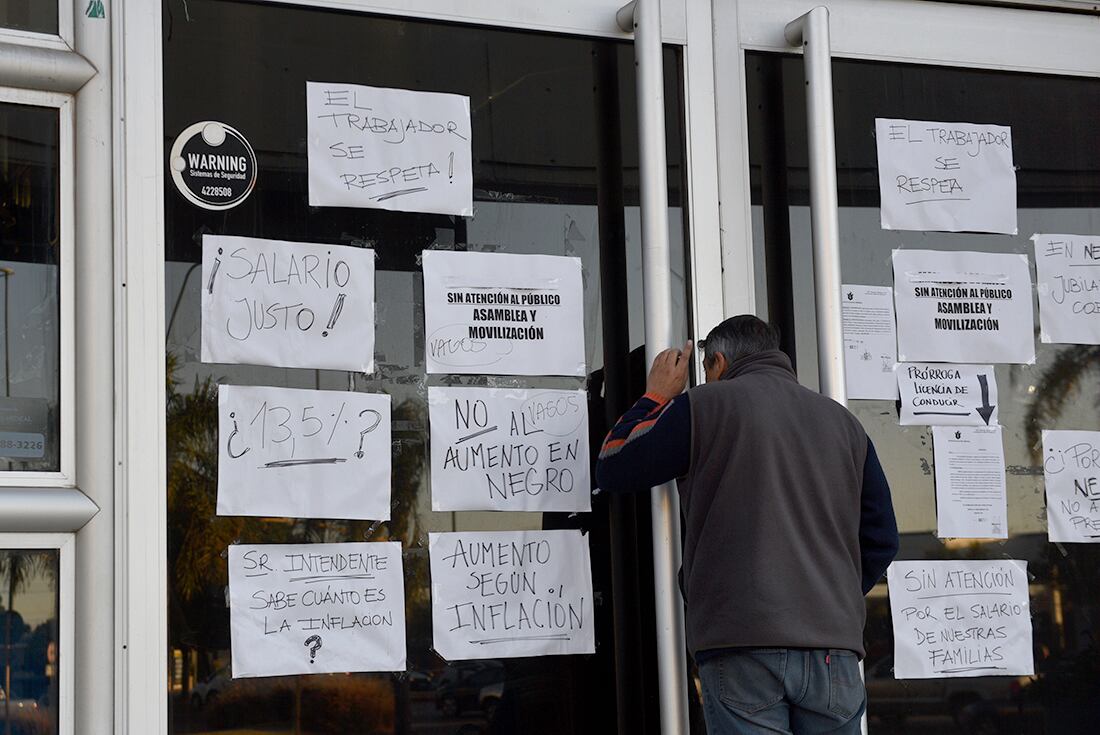 EL
TRABAJADOR
SE
RESPETA!
WARNING
Sistemas de Seguridad
4228508
¡SALARIO
JUSTO!
SIN ATENCIÓN AL PÚBLICO
ASAMBLEA Y
MOVILIZACIÓN
VAGOS
¿13,5%?
NO AL VAGOS
AUMENTO EN
NEGRO
SR. INTENDENTE
SABE CUÁNTO ES
LA INFLACION
?
AUMENTO
SEGÚN
INFLACIÓN
88-3226
EL TRABAJADOR
SE
RESPETA
SIN ATENCIÓN AL PÚBLICO
ASAMBLEA Y
MOVILIZACIÓN
EN NE
JUBILA
CO
PRÓRROGA
LICENCIA DE
CONDUCIR
¿¡POR
NE
NO A
PRE
SIN ATENCIÓN
POR EL SALARIO
DE NUESTRAS
FAMILIAS